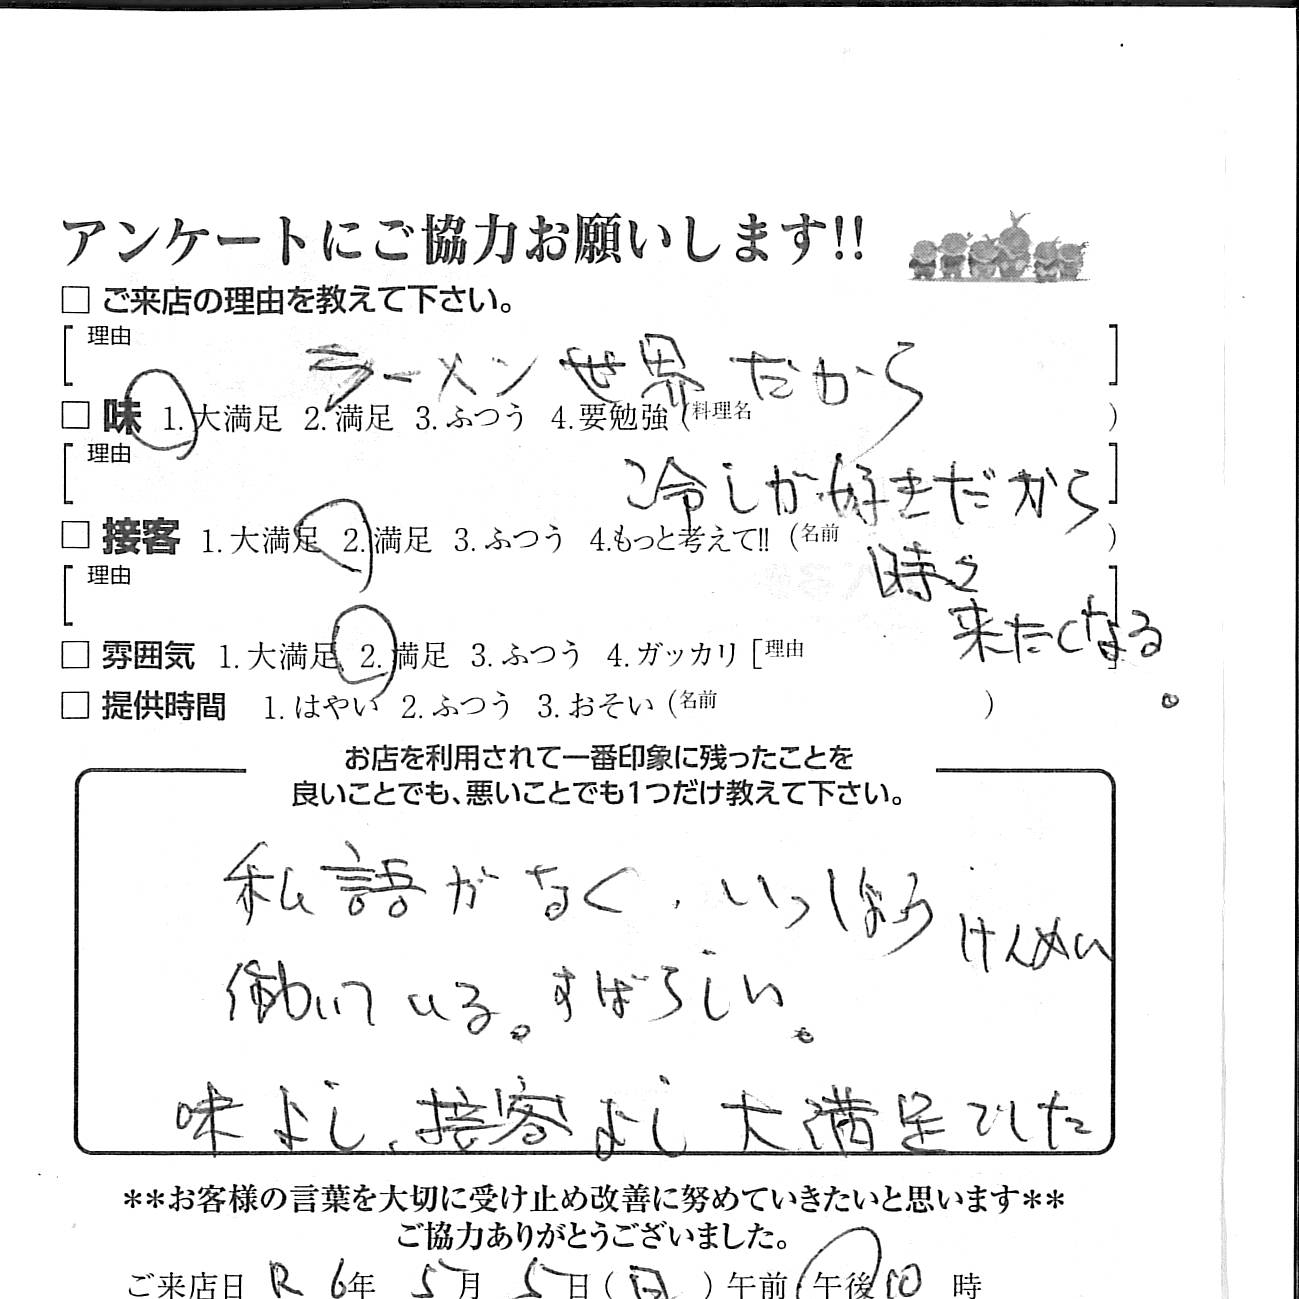 アンケートにご協力お願いします!!
□ ご来店の理由を教えて下さい。
[理由 ラーメン世界だから ]
□ 味 1.大満足 2.満足 3.ふつう 4.要勉強 (料理名 )
[理由 冷しが好きだから ]
□ 接客 1.大満足 2.満足 3.ふつう 4.もっと考えて!! (名前 )
時々
[理由 ]
来たくなる。
□ 雰囲気 1.大満足 2.満足 3.ふつう 4.ガッカリ [理由 ]
□ 提供時間 1.はやい 2.ふつう 3.おそい (名前 )
お店を利用されて一番印象に残ったことを
良いことでも、悪いことでも1つだけ教えて下さい。
私語がなく、いっしょう けんめい
働いている。すばらしい。
味よし、接客よし 大満足でした
**お客様の言葉を大切に受け止め改善に努めていきたいと思います**
ご協力ありがとうございました。
ご来店日 R 6年 5月 5日(日)午前・午後10時